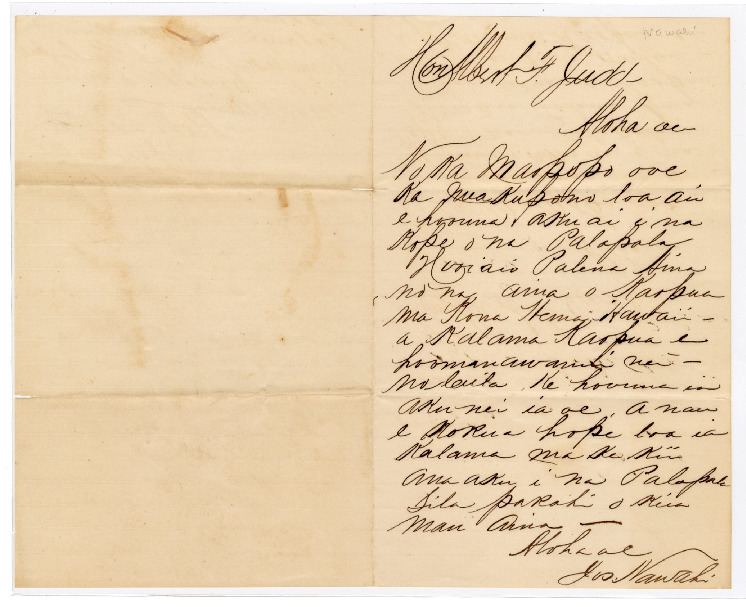 Nawahi
Hon Albert F. Judd
Aloha oe
No Ka Maopopo ole
Ka mea Kupono loa au
e hoouna aku ai i na
Kope o na Palapala
Hooiaio Palena Aina
no na aina o Kaopua
ma Kona Hema, Hawaii -
a Kalama Kaopua e
hoomanawanui nei -
Nolaila, Ke hoouna
aku nei ia oe, a nau
e Kokua hope loa ia
Kalama ma ke Kii
ana aku i na Palapala
Sila pakahi o kela
mau aina -
Aloha oe
Jos. Nawahi